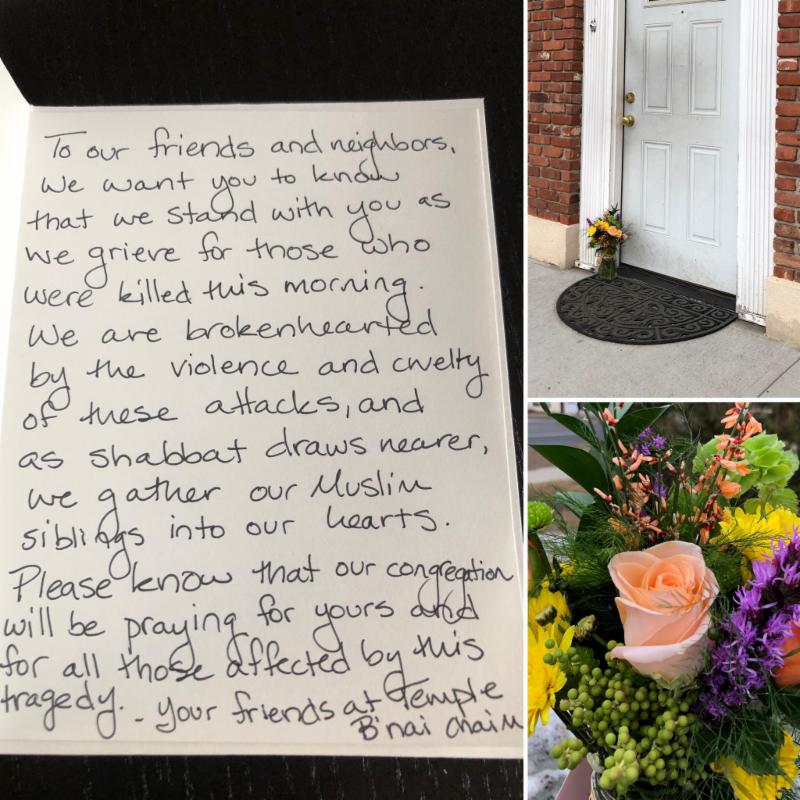 To our friends and neighbors,
We want you to know
that we stand with you as
we grieve for those who
were killed this morning.
We are brokenhearted
by the violence and cruelty
of these attacks, and
as shabbat draws nearer,
we gather our Muslim
siblings into our hearts.
Please know that our congregation
will be praying for yours and
for all those affected by this
tragedy. - your friends at Temple
B'nai Chaim